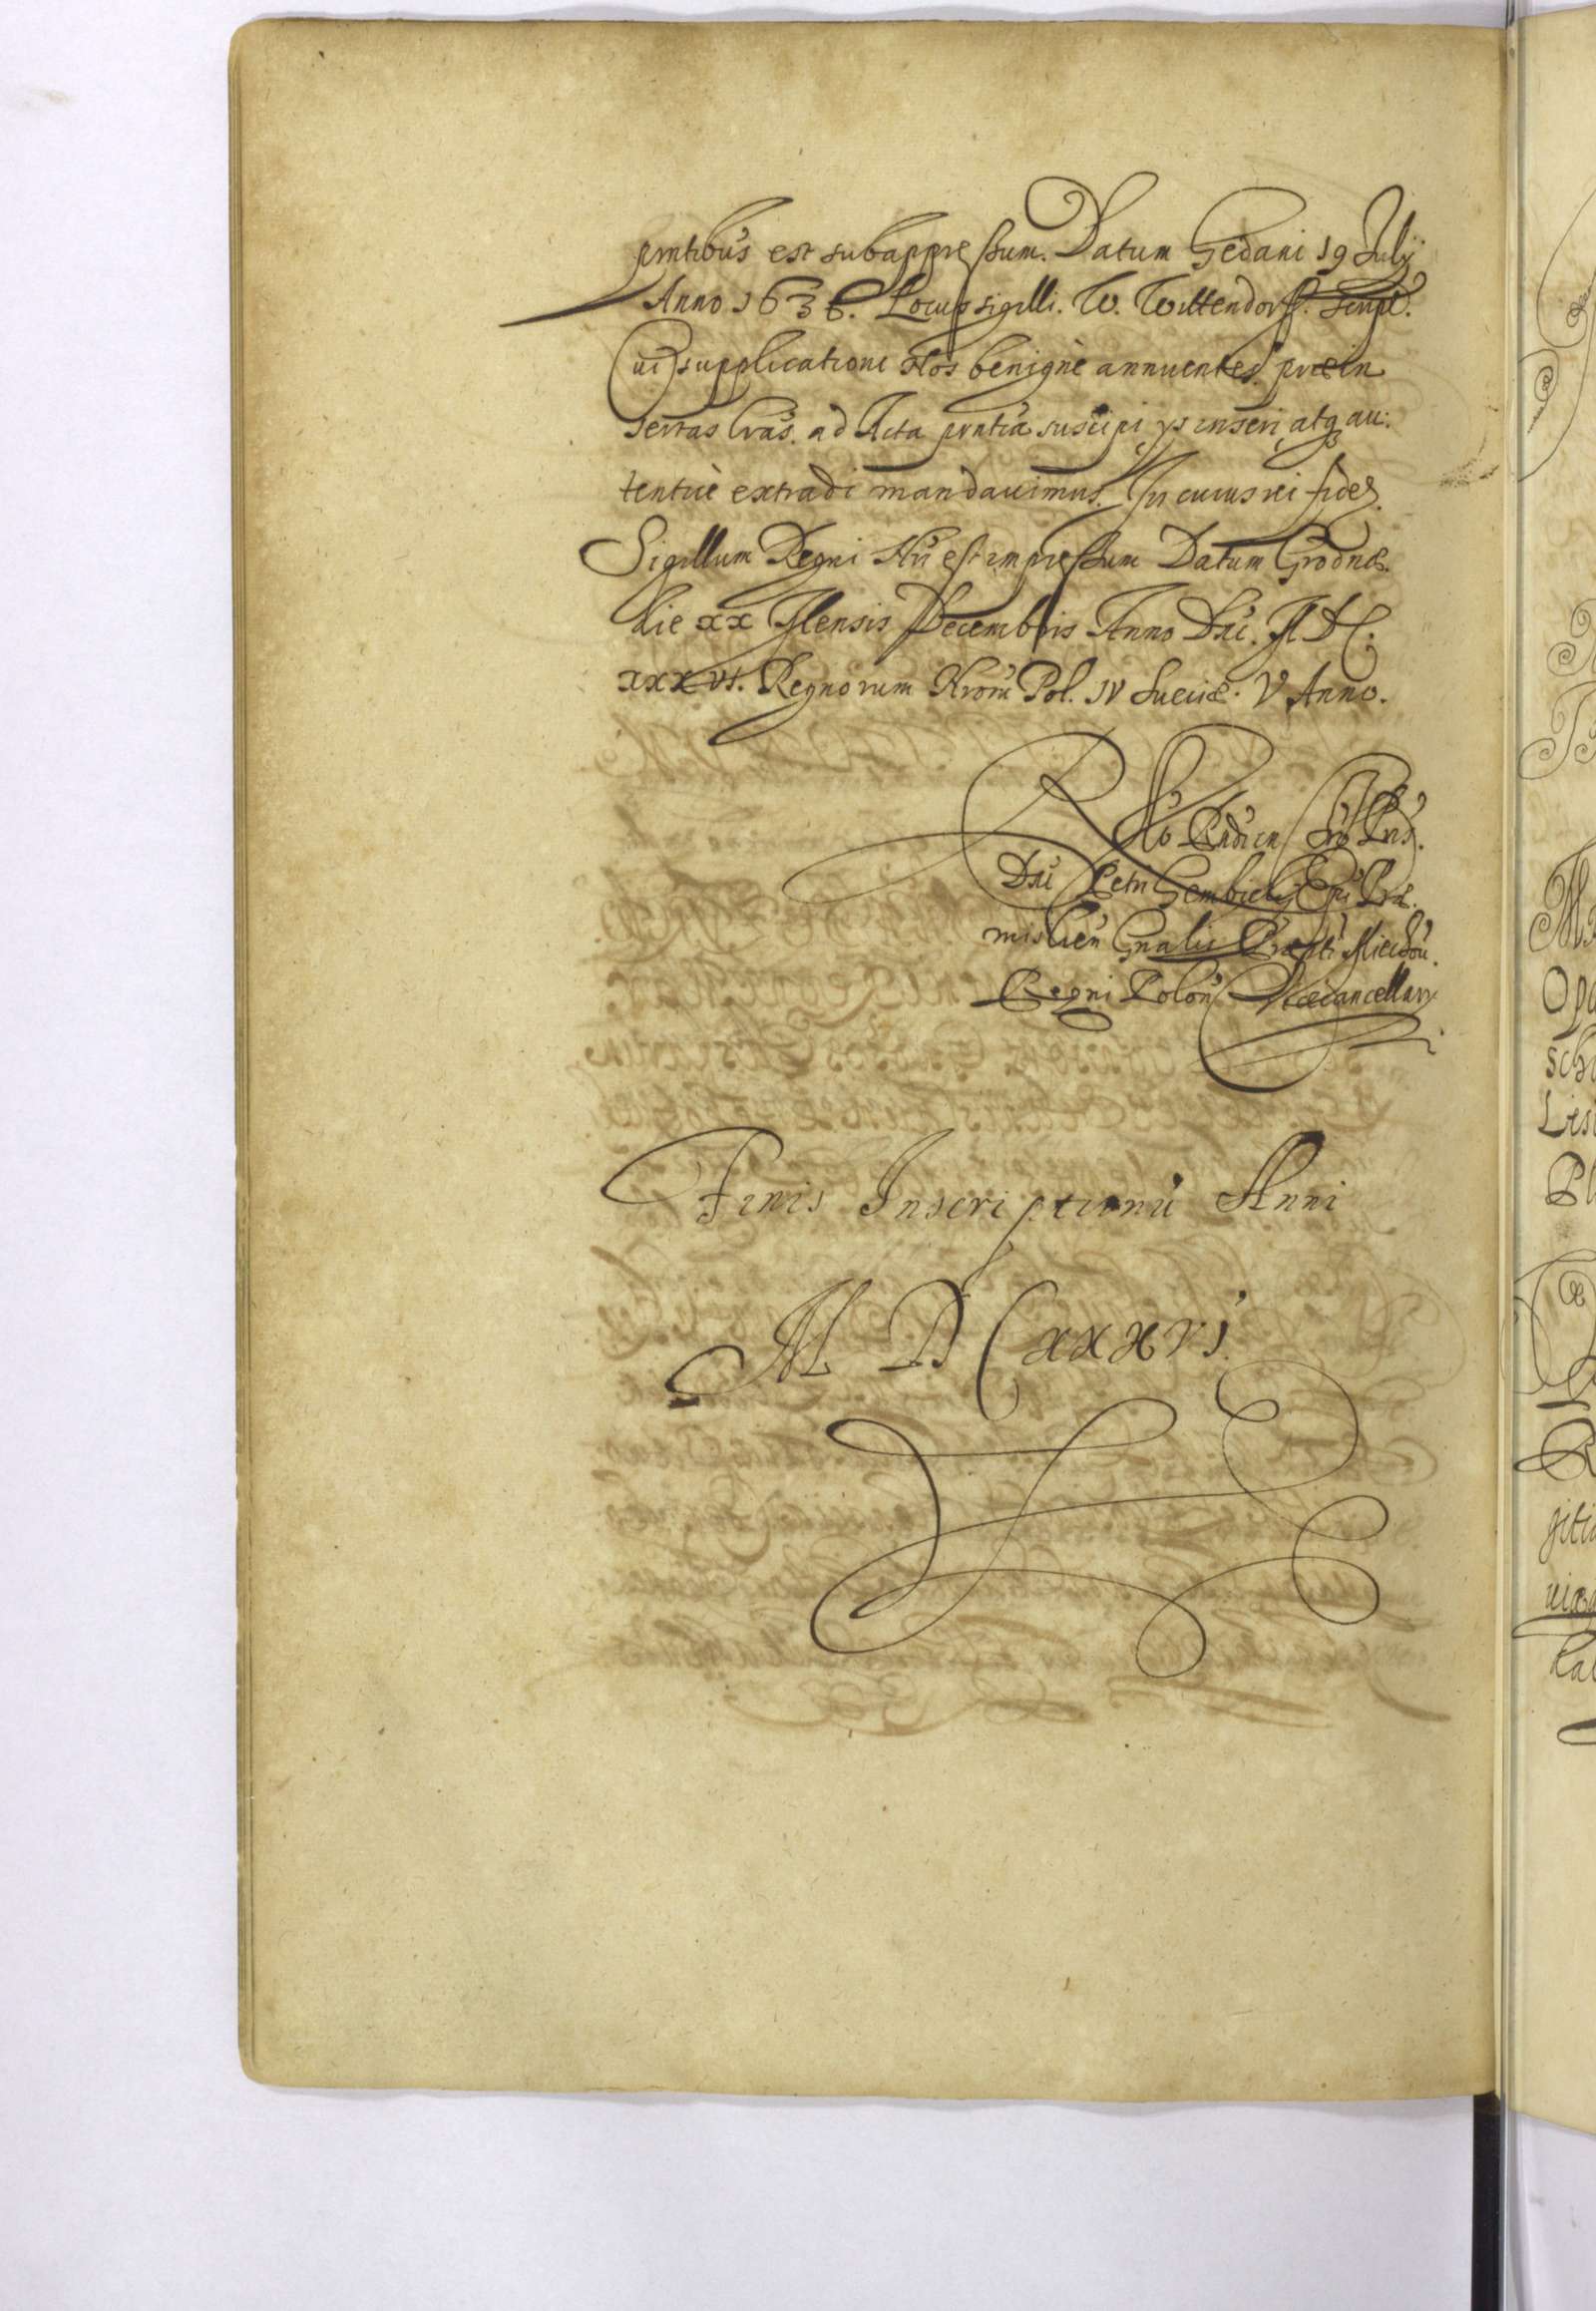 prntibus est subappressum. Datum Gedani 19 July
Anno 1636. Locus sigilli. W. Wittendorff. script.
Cui supplicationi Nos benignè annuentes præin
sertas lras. ad Acta prntia suscipi ys inseri, atq au:
tenticè extradi mandauimus. In cuius rei fidem
Sigillum Regni Nri est impressum Datum Grodnæ.
die xx Mensis Decembris Anno Dni. M D C.
xxxvi. Regnorum Nrorū Pol. IV Sueciæ. V Anno.
Rlo Rndi in Xro Pris.
Dni Petri Gembicky Epi Præ.
mislien Gnalis Præpti Miechou.
Regni Polon Vicecancellary
Finis Inscriptionū Anni
M D C xxxvi